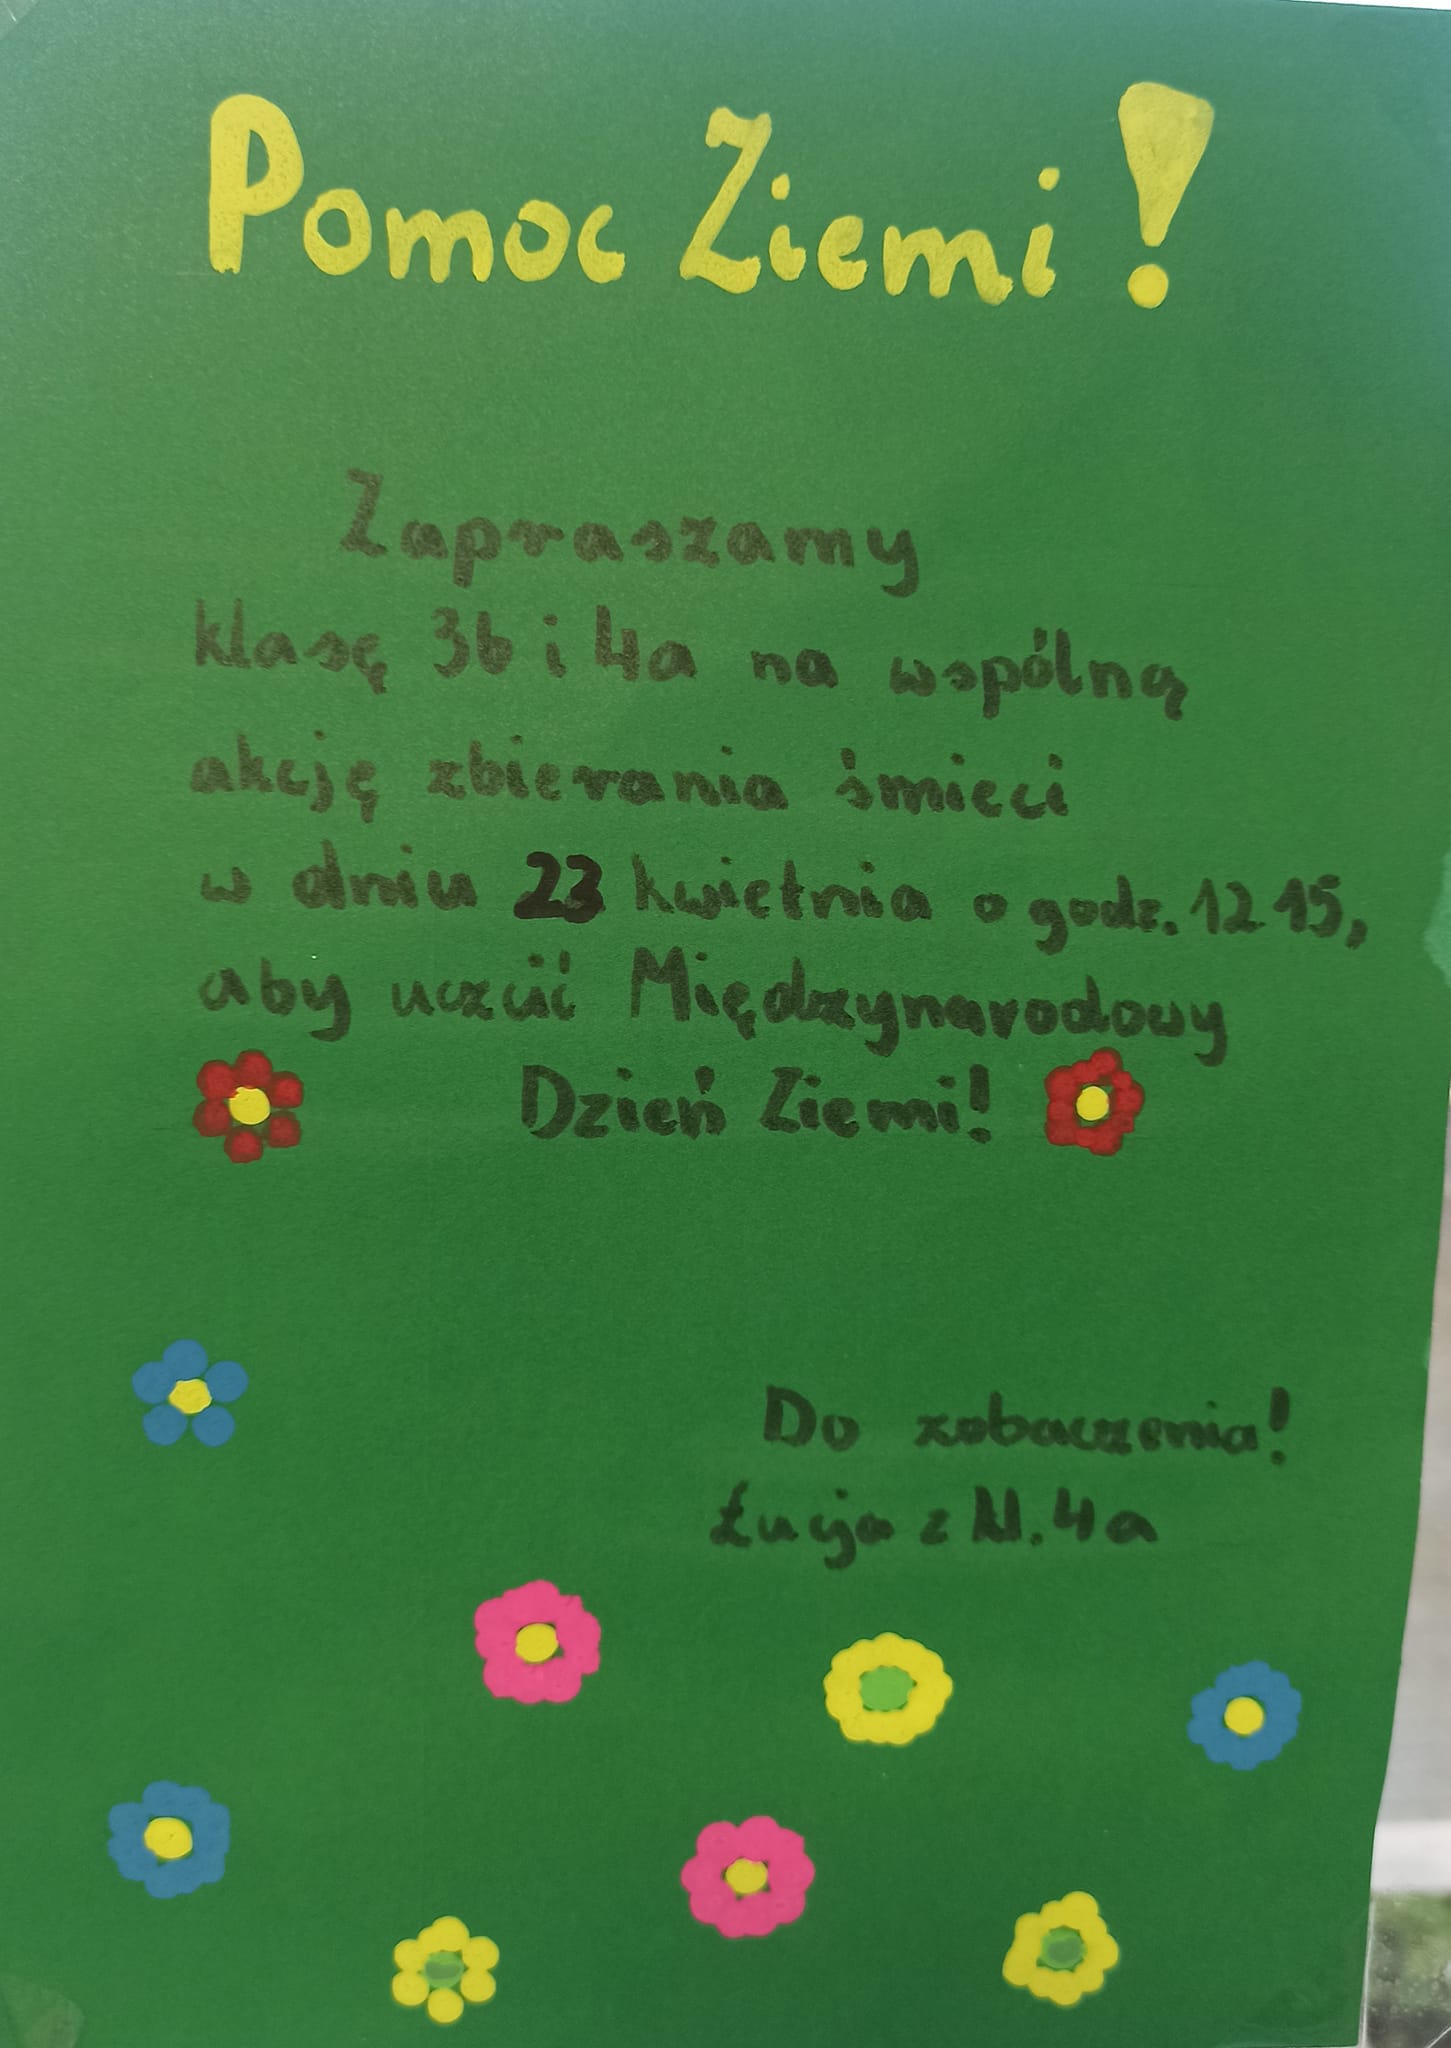 Pomoc Ziemi!
Zapraszamy
klasę 3b i 4a na wspólną
akcję zbierania śmieci
w dniu 23 kwietnia o godz. 12 15,
aby uczcić Międzynarodowy
Dzień Ziemi!
Do zobaczenia!
Łucja z kl. 4a